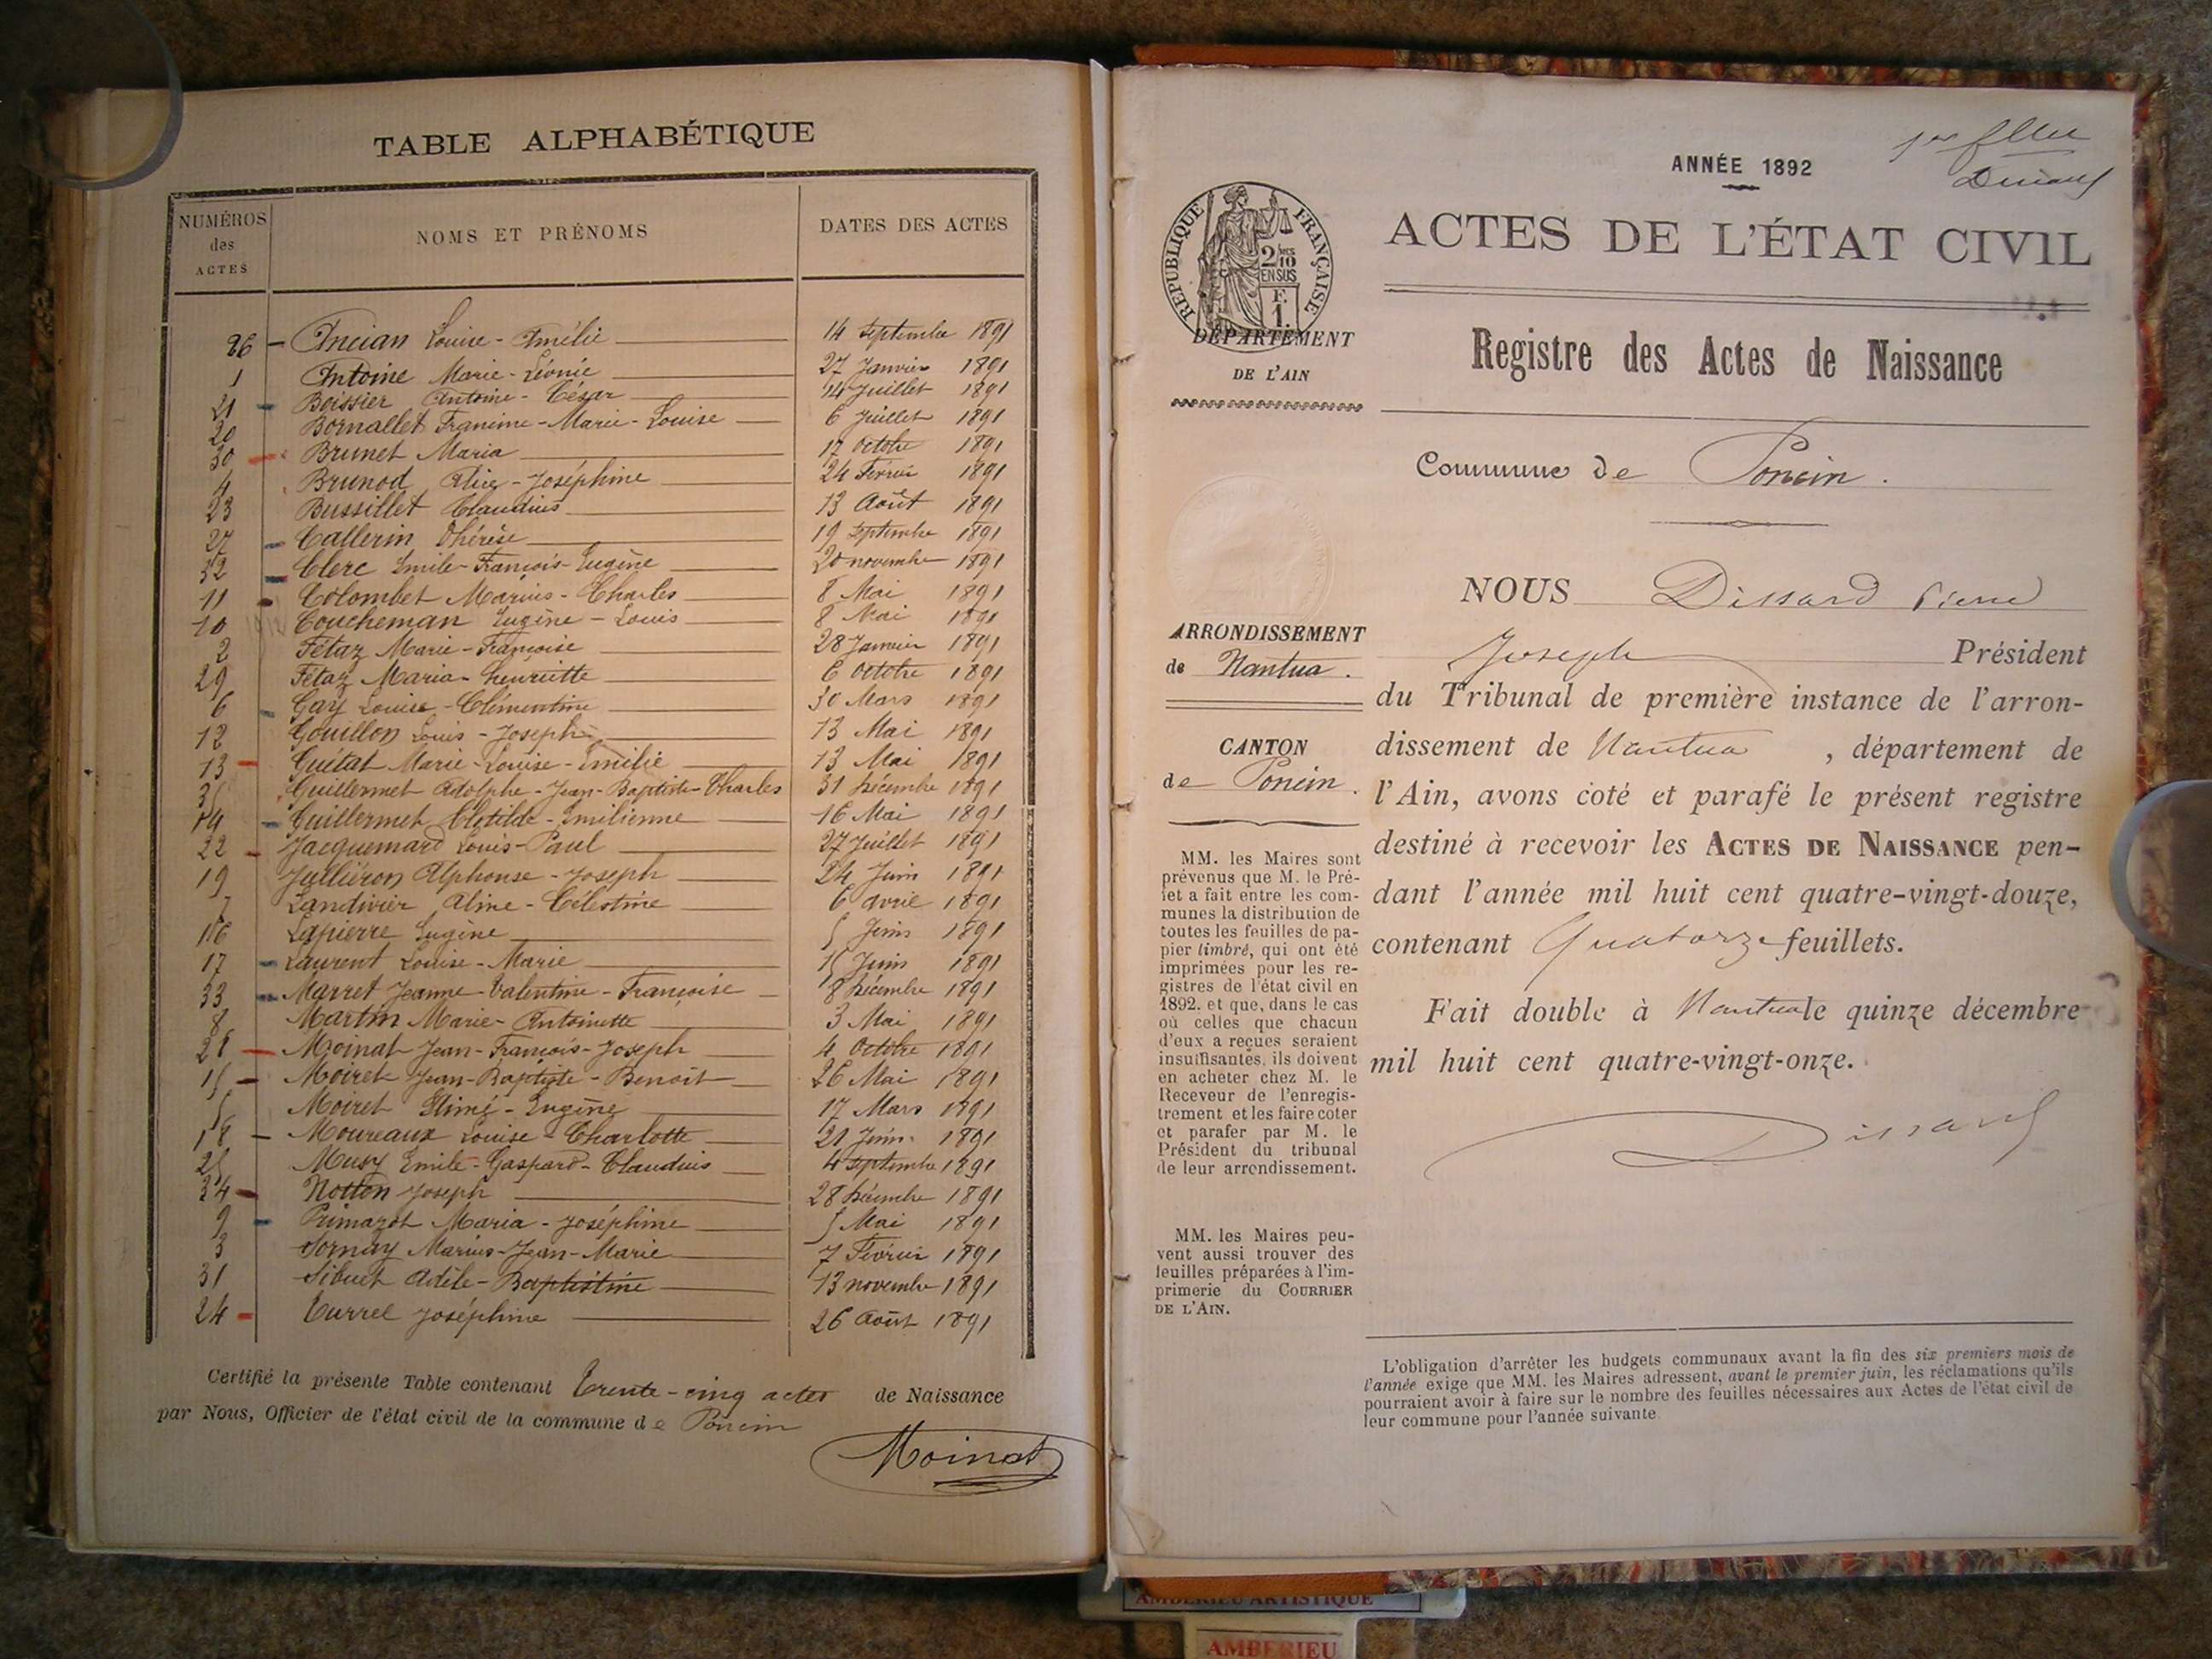 TABLE ALPHABÉTIQUE
NUMÉROS des ACTES
NOMS ET PRÉNOMS
DATES DES ACTES
26 Ancian Louise-Amélie 14 Septembre 1891
1 Antoine Marie-Léonie 27 Janvier 1891
21 Boissier Antoine-César 14 Juillet 1891
20 Bornallet Franine-Marie-Louise 6 Juillet 1891
30 Brunet Maria 17 Octobre 1891
4 Brunod Alice-Joséphine 24 Février 1891
23 Bussillet Claudius 13 Août 1891
27 Callerin Thérèse 19 Septembre 1891
32 Clerc Emile-François-Eugène 20 novembre 1891
11 Colombet Marius-Charles 8 Mai 1891
10 Coucheman Eugène-Louis 8 Mai 1891
2 Fétaz Marie-Françoise 28 Janvier 1891
29 Fétaz Maria-henriette 6 Octobre 1891
6 Gay Louise-Clémentine 30 Mars 1891
12 Gouillon Louis-Joseph 13 Mai 1891
13 Guétat Marie-Louise-Emilie 13 Mai 1891
35 Guillermet Adolphe-Jean-Baptiste-Charles 31 Décembre 1891
14 Guillermet Clotilde-Emilienne 16 Mai 1891
22 Jacquemard Louis-Paul 27 Juillet 1891
19 Jullieron Alphonse-Joseph 24 Juin 1891
7 Landivier Aline-Célestine 6 avril 1891
16 Lapierre Eugène 5 Juin 1891
17 Laurent Louise-Marie 15 Juin 1891
33 Marret Jeanne-Valentine-Françoise 8 Décembre 1891
8 Martin Marie-Antoinette 3 Mai 1891
28 Moinat Jean-François-Joseph 4 Octobre 1891
15 Moiret Jean-Baptiste-Benoît 26 Mai 1891
5 Moiret Aimé-Eugène 17 Mars 1891
18 Moureaux Louise-Charlotte 21 Juin 1891
25 Musy Emile-Gaspard-Claudius 4 Septembre 1891
34 Notton Joseph 28 Décembre 1891
9 Primazot Maria-Joséphine 5 Mai 1891
3 Sornay Marius-Jean-Marie 7 Février 1891
31 Sibuet Adèle-Baptistine 13 novembre 1891
24 Turrel Joséphine 26 Août 1891
Certifié la présente Table contenant Trente-cinq actes de Naissance
par Nous, Officier de l'état civil de la commune de Poncin
Moinat
ANNÉE 1892
Dissard
RÉPUBLIQUE FRANÇAISE
2/10 EN SUS
F. 1.
ACTES DE L'ÉTAT CIVIL
DÉPARTEMENT
DE L'AIN
Registre des Actes de Naissance
Commune de Poncin.
NOUS Dissard Pierre
ARRONDISSEMENT
de Nantua.
Joseph Président
du Tribunal de première instance de l'arron-
CANTON
de Poncin.
dissement de Nantua, département de
l'Ain, avons coté et parafé le présent registre
destiné à recevoir les ACTES DE NAISSANCE pen-
dant l'année mil huit cent quatre-vingt-douze,
contenant Quatorze feuillets.
Fait double à Nantua le quinze décembre
mil huit cent quatre-vingt-onze.
Dissard
MM. les Maires sont
prévenus que M. le Pré-
fet a fait entre les com-
munes la distribution de
toutes les feuilles de pa-
pier timbré, qui ont été
imprimées pour les re-
gistres de l'état civil en
1892. et que, dans le cas
où celles que chacun
d'eux a reçues seraient
insuffisantes, ils doivent
en acheter chez M. le
Receveur de l'enregis-
trement et les faire coter
et parafer par M. le
Président du tribunal
de leur arrondissement.
MM. les Maires peu-
vent aussi trouver des
feuilles préparées à l'im-
primerie du COURRIER
DE L'AIN.
L'obligation d'arrêter les budgets communaux avant la fin des six premiers mois de
l'année exige que MM. les Maires adressent, avant le premier juin, les réclamations qu'ils
pourraient avoir à faire sur le nombre des feuilles nécessaires aux Actes de l'état civil de
leur commune pour l'année suivante
AMBERIEU ARTISTIQUE
AMBERIEU